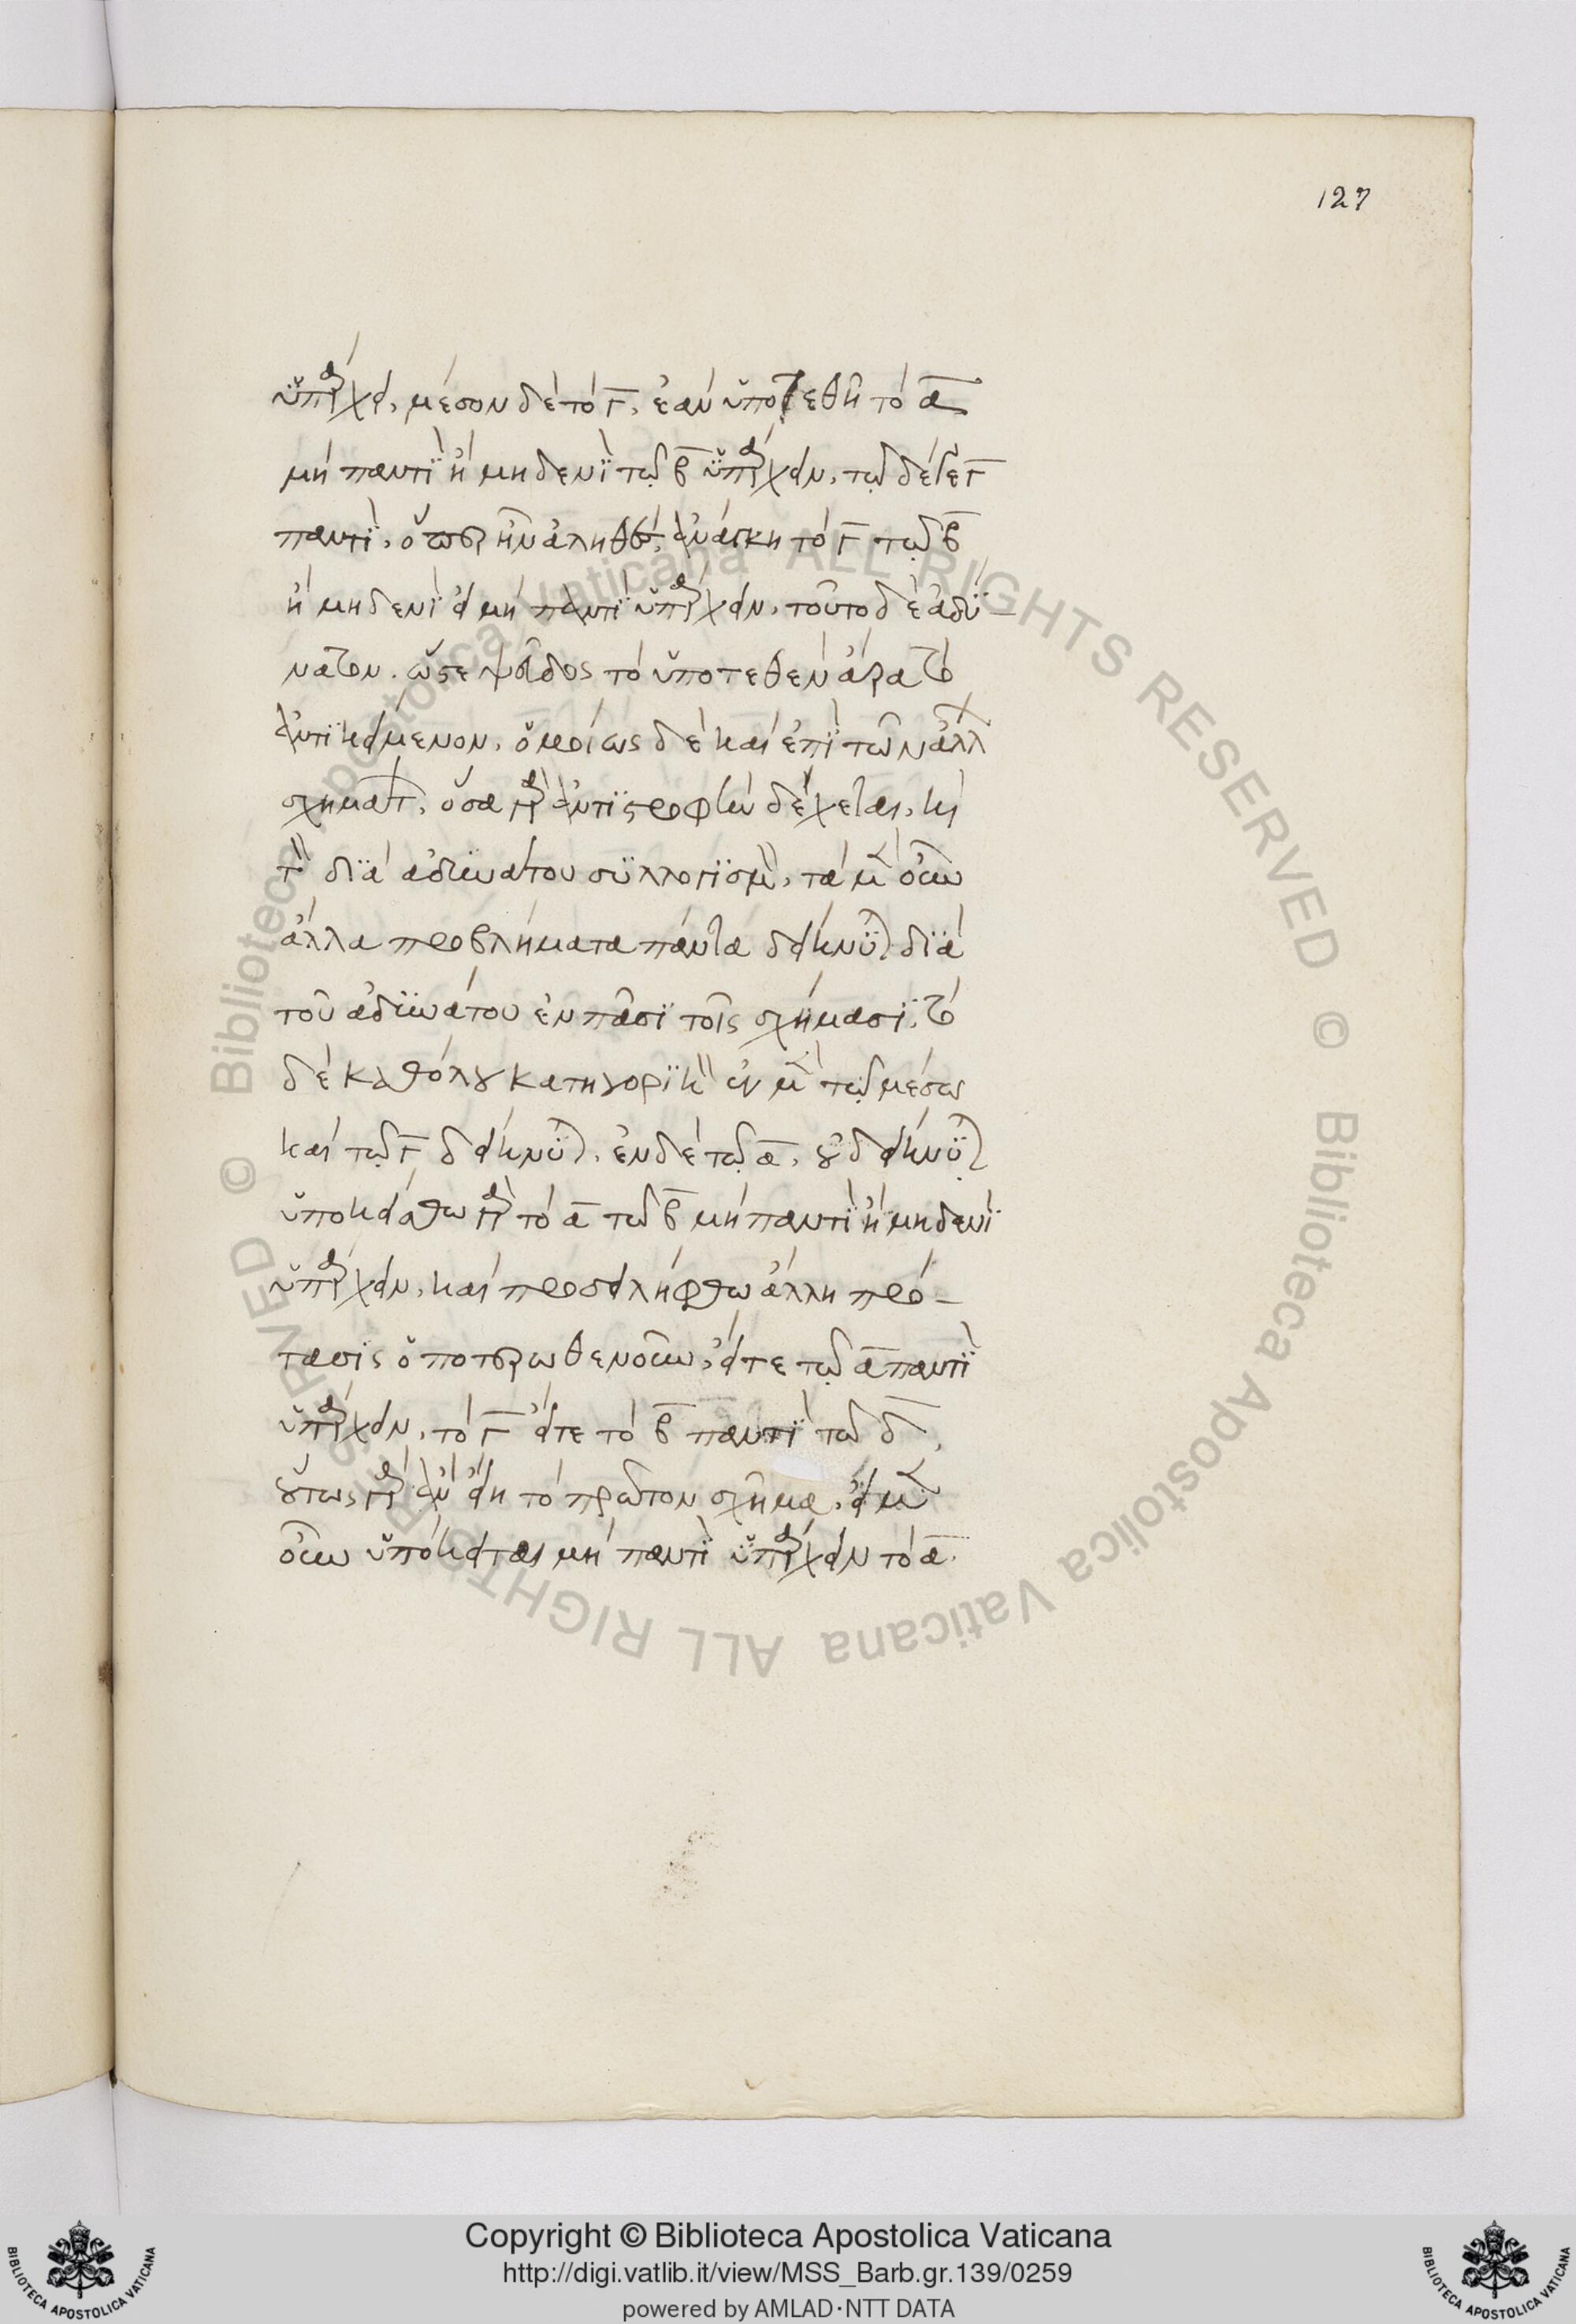 127
ὑπάρχει, μέσον δὲ τὸ Γ, ἐὰν ὑποτεθῆ τὸ α
μὴ παντὶ ἢ μηδενὶ τῶ β ὑπάρχειν, τῶ δὲ γε Γ
παντὶ, ὅπερ ἦν ἀληθὲς, ἀνάγκη τὸ Γ τῶ β
ἢ μηδενὶ ἢ μὴ παντὶ ὑπάρχειν, τοῦτο δὲ ἀδύ-
νατον. ὥστε ψεῦδος τὸ ὑποτεθὲν ἄρα τὸ
ἀντικείμενον. ὁμοίως δὲ καὶ ἐπὶ τῶν ἄλλ
σχημάτ, ὅσα γὰρ ἀντιστροφὴν δέχεται, καὶ
τὸν διὰ ἀδυνάτου συλλογισμὸν, τὰ μὲν οὖν
ἄλλα προβλήματα πάντα δείκνυται διὰ
τοῦ ἀδυνάτου ἐν πᾶσι τοῖς σχήμασι, τὸ
δὲ καθόλου κατηγορικὸν ἐν μὲν τῶ μέσω
καὶ τῶ Γ δείκνυται, ἐν δὲ τῶ α, οὐ δείκνυται
ὑποκείσθω γὰρ τὸ α τῶ β μὴ παντὶ ἢ μηδενὶ
ὑπάρχειν, καὶ προσειλήφθω ἄλλη πρό-
τασις ὁποτερωθενοῦν, εἴτε τῶ α παντὶ
ὑπάρχειν, τὸ Γ εἴτε τὸ β παντὶ τῶ δ,
οὕτως γὰρ ἂν εἴη τὸ πρῶτον σχῆμα, εἰ μὲν
οὖν ὑπόκειται μὴ παντὶ ὑπάρχειν τὸ α.
© Biblioteca Apostolica Vaticana ALL RIGHTS RESERVED © Biblioteca Apostolica Vaticana ALL RIGHTS RESERVED
Copyright © Biblioteca Apostolica Vaticana
http://digi.vatlib.it/view/MSS_Barb.gr.139/0259
powered by AMLAD·NTT DATA
BIBLIOTECA APOSTOLICA VATICANA
BIBLIOTECA APOSTOLICA VATICANA